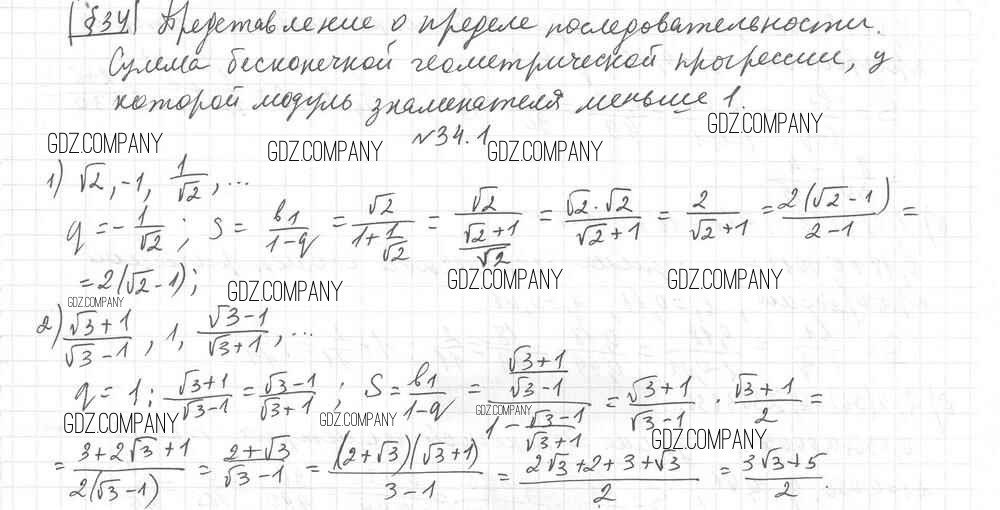 §34 Представление о пределе последовательности.
Сумма бесконечной геометрической прогрессии, у
которой модуль знаменателя меньше 1.
GDZ.COMPANY
№34.1
GDZ.COMPANY GDZ.COMPANY GDZ.COMPANY
1) √2, -1, 1/√2, ...
q = -1/√2; S = b1/(1-q) = √2/(1+1/√2) = √2/((√2+1)/√2) = (√2·√2)/(√2+1) = 2/(√2+1) = 2(√2-1)/(2-1) =
= 2(√2-1);
GDZ.COMPANY GDZ.COMPANY GDZ.COMPANY
GDZ.COMPANY
2) (√3+1)/(√3-1), 1, (√3-1)/(√3+1), ...
q = 1 : (√3+1)/(√3-1) = (√3-1)/(√3+1); S = b1/(1-q) = ((√3+1)/(√3-1))/(1-(√3-1)/(√3+1)) = (√3+1)/(√3-1) · (√3+1)/2 =
GDZ.COMPANY GDZ.COMPANY GDZ.COMPANY GDZ.COMPANY
= (3+2√3+1)/(2(√3-1)) = (2+√3)/(√3-1) = (2+√3)(√3+1)/(3-1) = (2√3+2+3+√3)/2 = (3√3+5)/2.